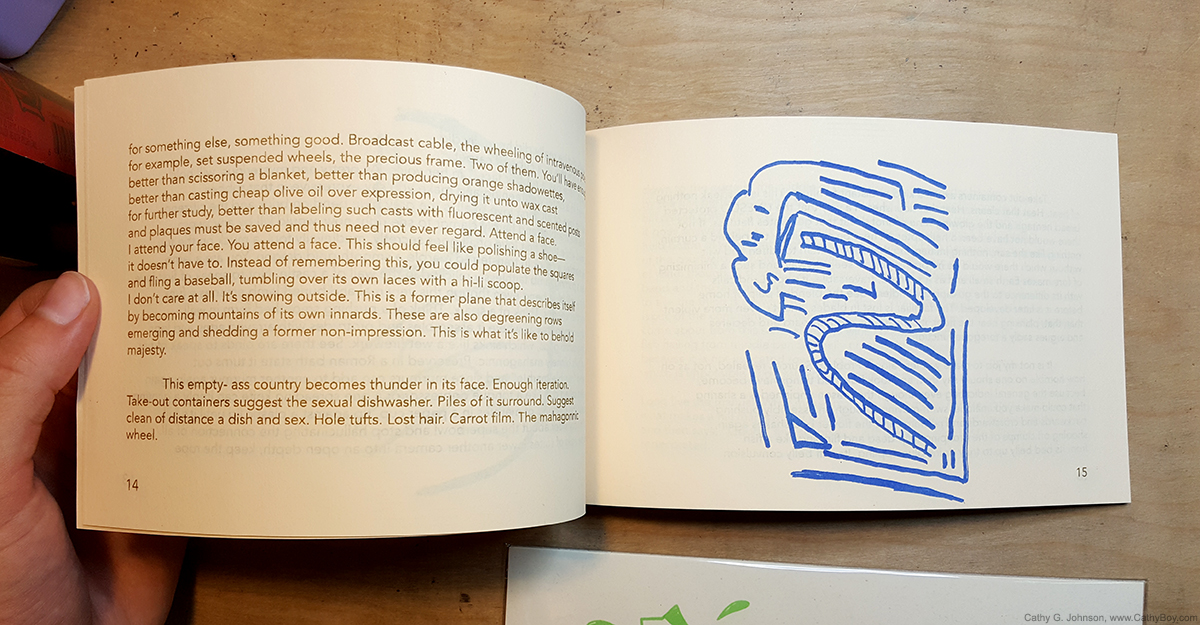 for something else, something good. Broadcast cable, the wheeling of intravenous
for example, set suspended wheels, the precious frame. Two of them. You'll have
better than scissoring a blanket, better than producing orange shadowettes,
better than casting cheap olive oil over expression, drying it unto wax cast
for further study, better than labeling such casts with fluorescent and scented posts
and plaques must be saved and thus need not ever regard. Attend a face.
I attend your face. You attend a face. This should feel like polishing a shoe—
it doesn't have to. Instead of remembering this, you could populate the squares
and fling a baseball, tumbling over its own laces with a hi-li scoop.
I don't care at all. It's snowing outside. This is a former plane that describes itself
by becoming mountains of its own innards. These are also degreening rows
emerging and shedding a former non-impression. This is what it's like to behold
majesty.
This empty- ass country becomes thunder in its face. Enough iteration.
Take-out containers suggest the sexual dishwasher. Piles of it surround. Suggest
clean of distance a dish and sex. Hole tufts. Lost hair. Carrot film. The mahogannic
wheel.
14
15
Cathy G. Johnson, www.CathyBoy.com